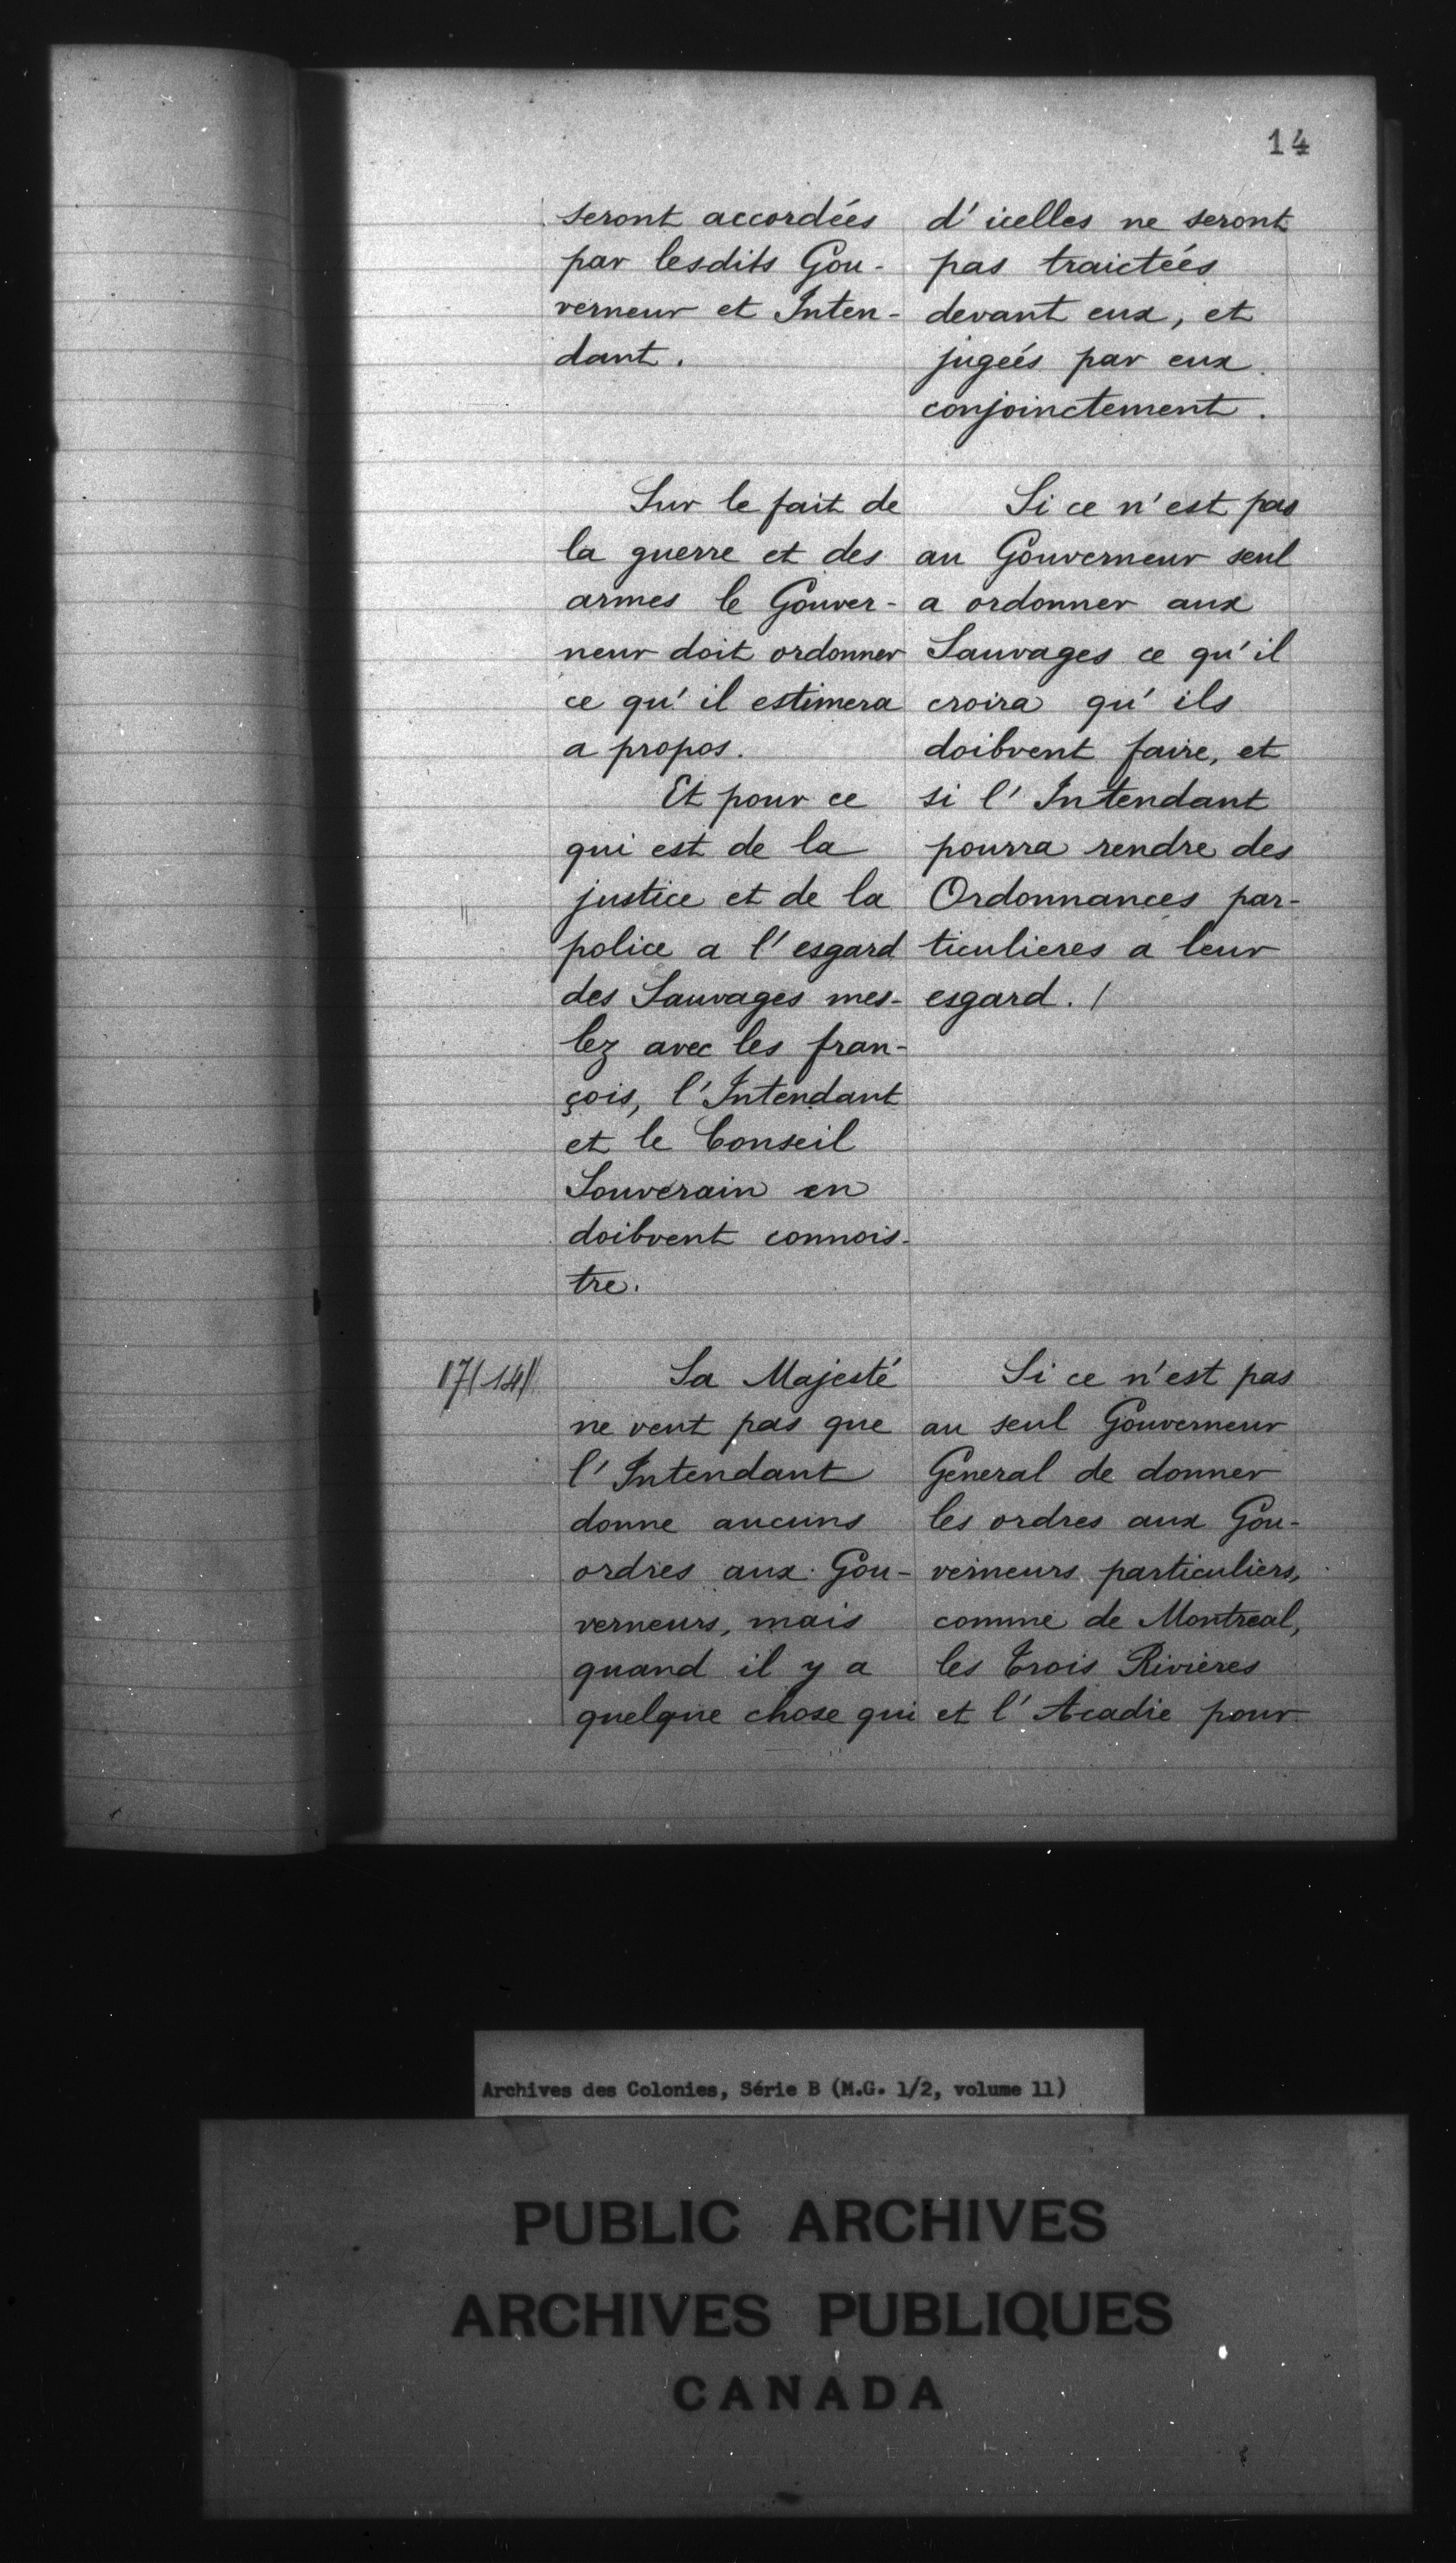 14
seront accordées
par lesdits Gou-
verneur et Inten-
dant.
Sur le fait de
la guerre et des
armes le Gouver-
neur doit ordonner
ce qu'il estimera
a propos.
Et pour ce
qui est de la
justice et de la
police a l'esgard
des Sauvages mes-
lez avec les fran-
çois, l'Intendant
et le Conseil
Souverain en
doibvent connois-
tre.
Sa Majesté
ne veut pas que
l'Intendant
donne aucuns
ordres aux Gou-
verneurs, mais
quand il y a
quelque chose qui
d'icelles ne seront
pas traictées
devant eux, et
jugeés par eux
conjoinctement.
Si ce n'est pas
au Gouverneur seul
a ordonner aux
Sauvages ce qu'il
croira qu'ils
doibvent faire, et
si l'Intendant
pourra rendre des
Ordonnances par-
ticulieres a leur
esgard. /
Si ce n'est pas
au seul Gouverneur
General de donner
les ordres aux Gou-
verneurs particuliers,
comme de Montreal,
les Trois Rivières
et l'Acadie pour
Archives des Colonies, Série B (M.G. 1/2, volume 11)
PUBLIC ARCHIVES
ARCHIVES PUBLIQUES
CANADA